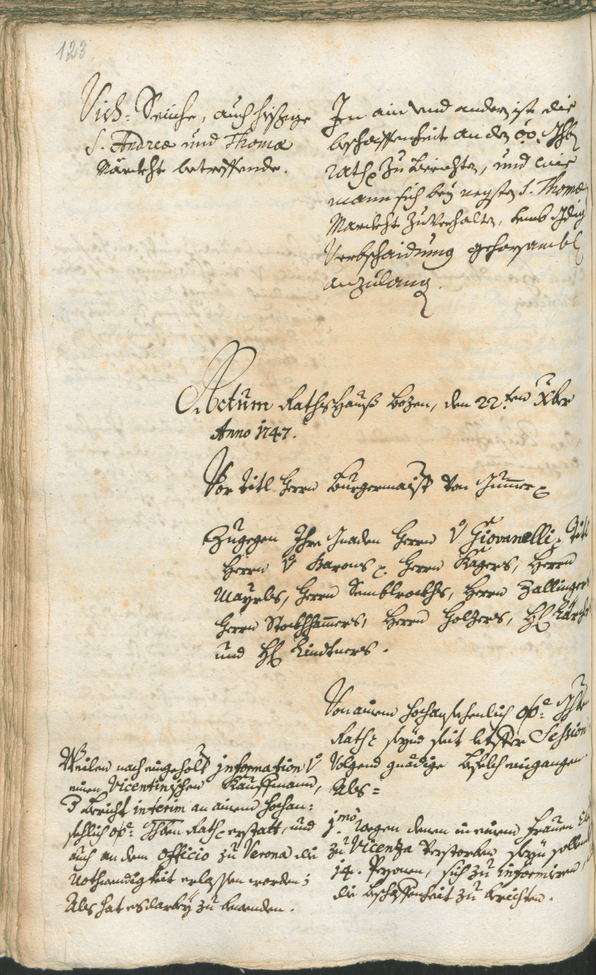 123
Vich-Seuche, auch hiesige
S. Andreæ und Thomæ
Märckht betreffende.
In ain und anderen ist die
beschaffenheit an den oö. Gehb.
Rath zu berichten, und wie
mann sich bey negsten S. Thomæ
Marckht zu verhalten, umb
Verbschaidung gehorsambl.
anzulangen.
Actum Rathshauß Bozen, den 22.ten Xber
Anno 1747.
Vor titl. Herrn Burgermaister von Gumer
Zugegen Ihro Gnaden Herrn v. Giovanelli, Titl.
Herrn v. Barons, Herrn Kagers, Herrn
Mayrls, Herrn Semblrockhs, Herrn Zallinger
Herrn Stockhhamers, Herrn Holzers, H.
und H. Lindtners.
Von ainem hochansehenlich oö. Gehb.
Rath seynd seit letster Session
Volgend gnädige Befelch eingangen
Als=
1mo. wegen denen in einem Frauen
zu Vicenza verstorben seyn sollen
14. Persohnen, sich zu informiren,
die beschaffenheit zu berichten.
Weilen nach eingeholt information v.
einem Vicentinischen Kauffmann,
Bericht interim an ainem hochan=
sehlich oö. Geh. Rath erstatt, und
auch an dem Officio zu Verona die
Nothwendigkeit erlassen worden;
Als hat es darbey zu bewenden.